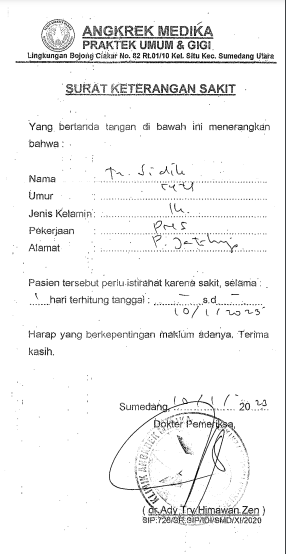 ANGKREK MEDIKA
PRAKTEK UMUM & GIGI
Lingkungan Bojong Ciakar No. 82 Rt.01/10 Kel. Situ Kec. Sumedang Utara
SURAT KETERANGAN SAKIT
Yang bertanda tangan di bawah ini menerangkan
bahwa :
Nama : Tn. Sidik
Umur :
Jenis Kelamin :
Pekerjaan :
Alamat :
Pasien tersebut perlu istirahat karena sakit, selama :
1 hari terhitung tanggal : – s.d –
10/1/2023
Harap yang berkepentingan maklum adanya. Terima
kasih.
Sumedang, 10/1/ 2023
Dokter Pemeriksa,
( dr.Ady Try Himawan Zen )
SIP:726/SR.SIP/IDI/SMD/XI/2020